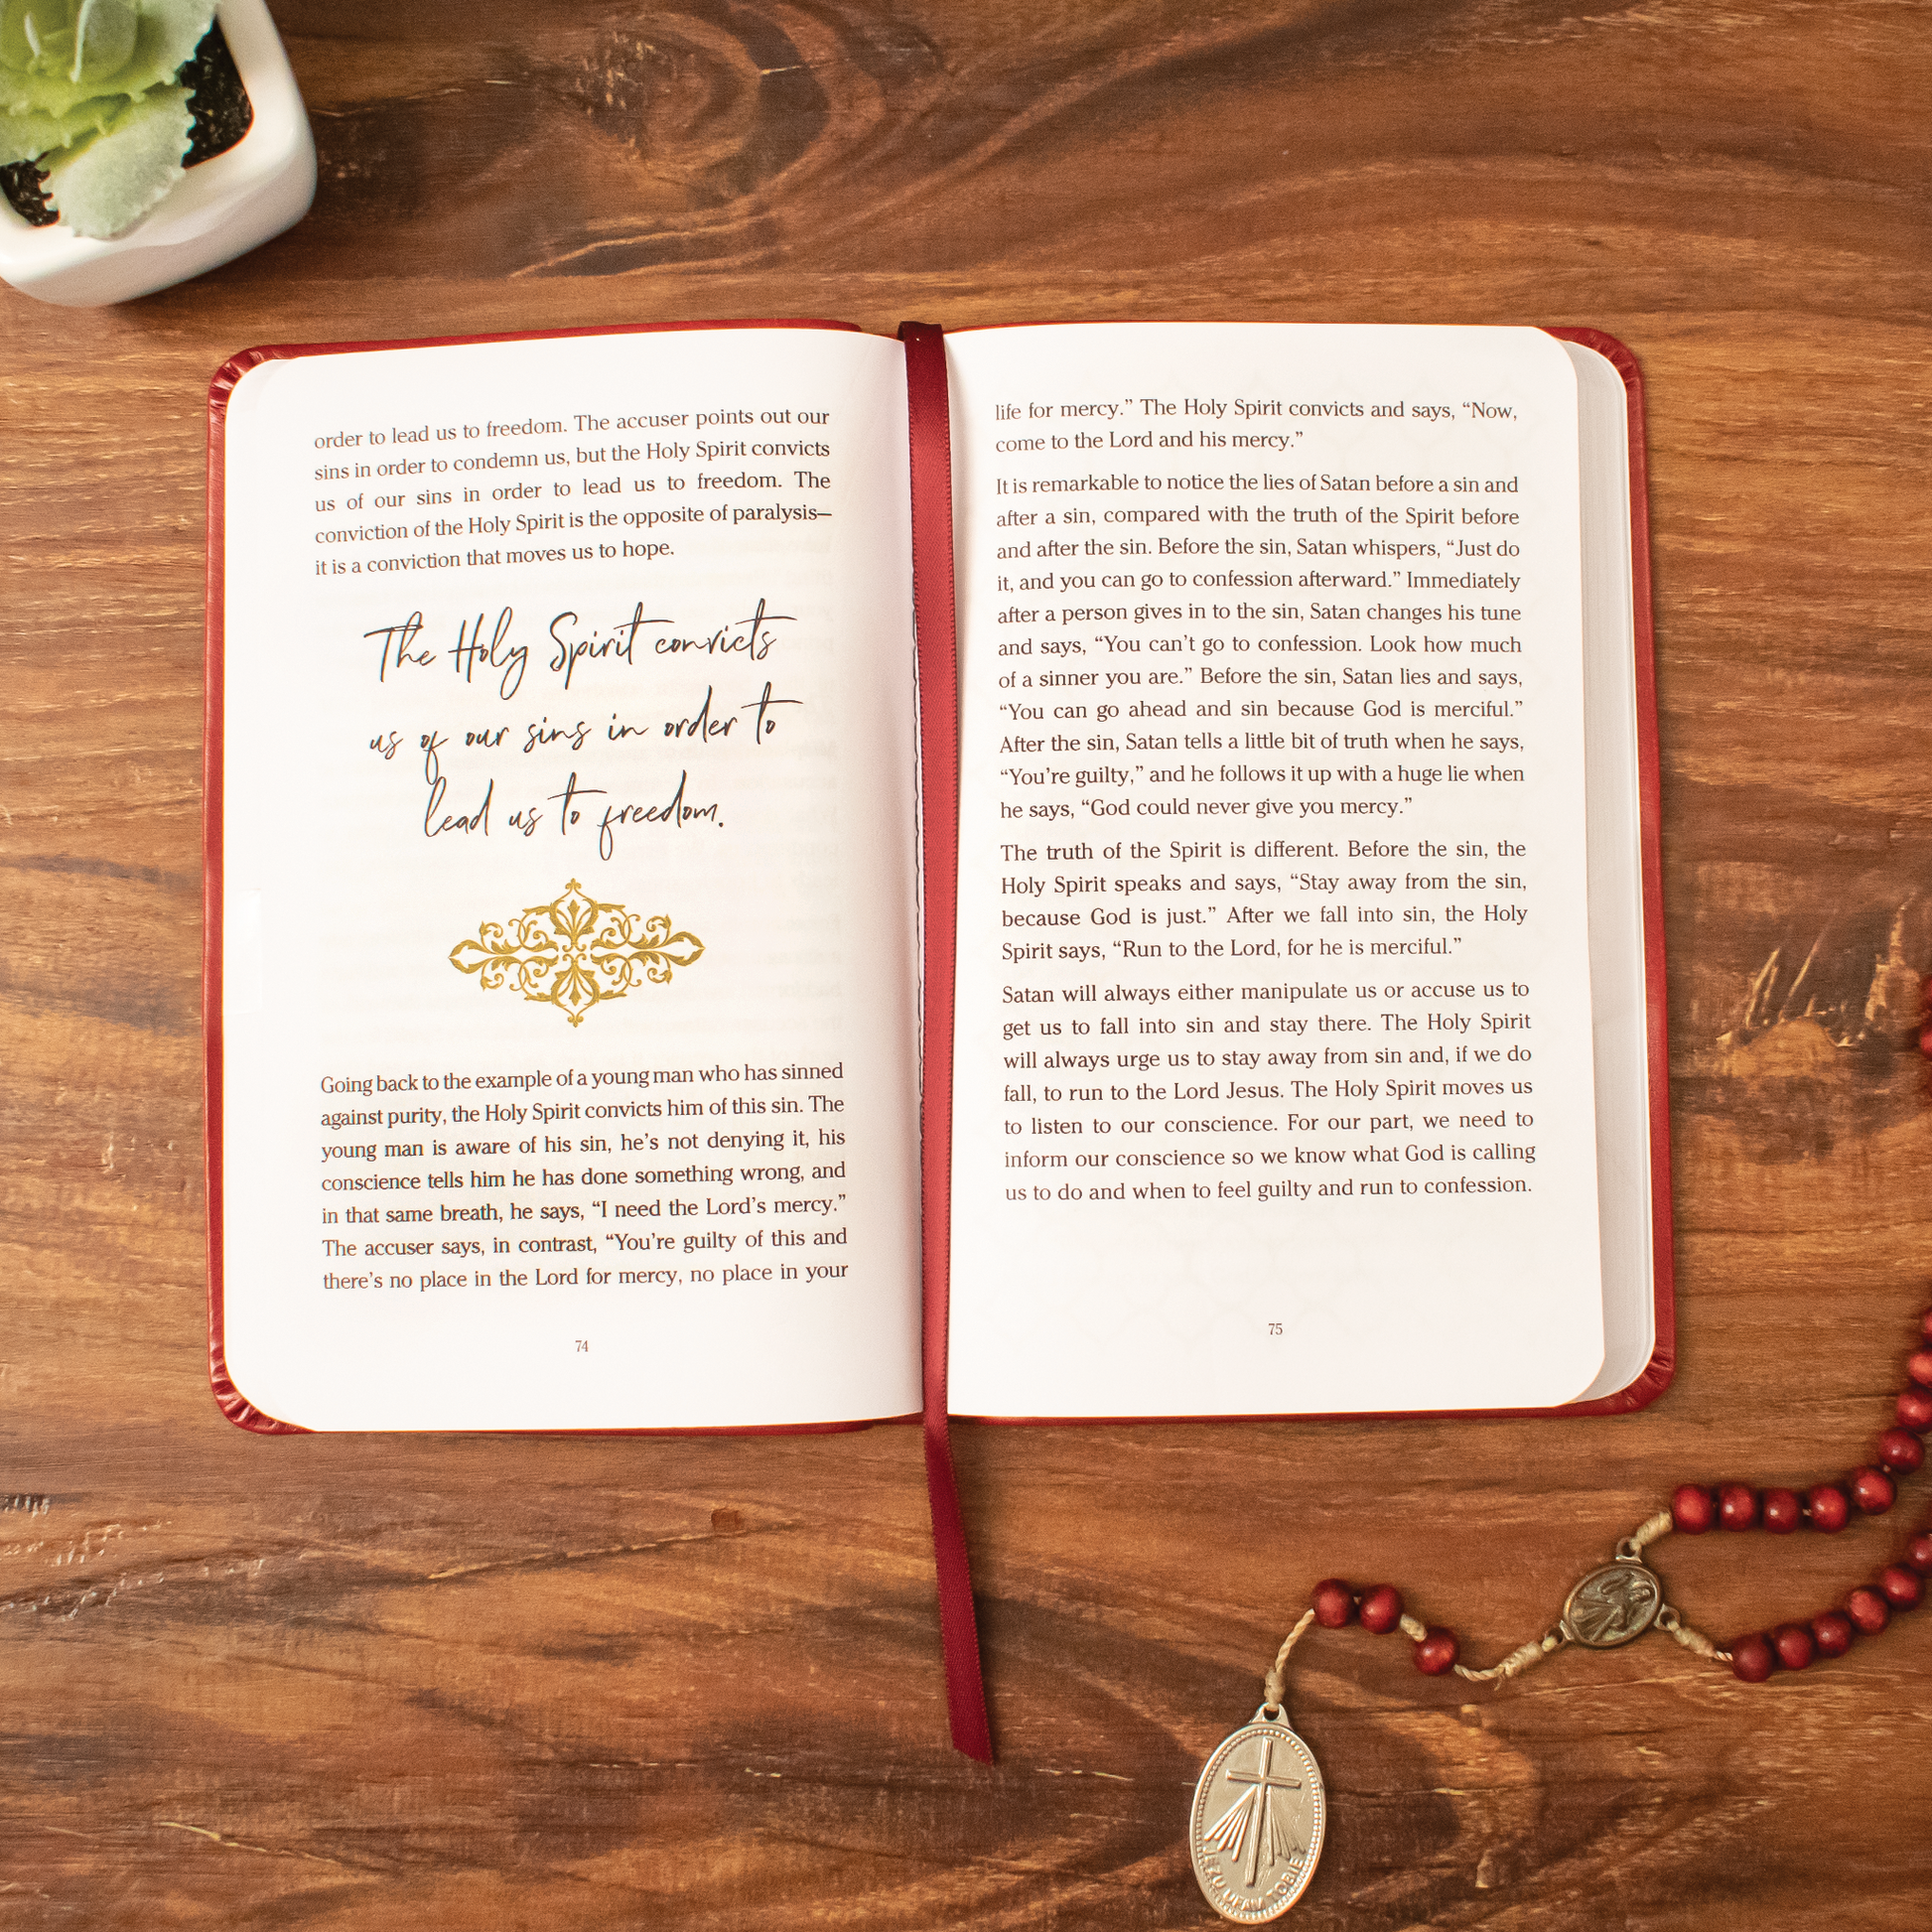 order to lead us to freedom. The accuser points out our
sins in order to condemn us, but the Holy Spirit convicts
us of our sins in order to lead us to freedom. The
conviction of the Holy Spirit is the opposite of paralysis—
it is a conviction that moves us to hope.
The Holy Spirit convicts
us of our sins in order to
lead us to freedom.
Going back to the example of a young man who has sinned
against purity, the Holy Spirit convicts him of this sin. The
young man is aware of his sin, he’s not denying it, his
conscience tells him he has done something wrong, and
in that same breath, he says, “I need the Lord’s mercy.”
The accuser says, in contrast, “You’re guilty of this and
there’s no place in the Lord for mercy, no place in your
74
life for mercy.” The Holy Spirit convicts and says, “Now,
come to the Lord and his mercy.”
It is remarkable to notice the lies of Satan before a sin and
after a sin, compared with the truth of the Spirit before
and after the sin. Before the sin, Satan whispers, “Just do
it, and you can go to confession afterward.” Immediately
after a person gives in to the sin, Satan changes his tune
and says, “You can’t go to confession. Look how much
of a sinner you are.” Before the sin, Satan lies and says,
“You can go ahead and sin because God is merciful.”
After the sin, Satan tells a little bit of truth when he says,
“You’re guilty,” and he follows it up with a huge lie when
he says, “God could never give you mercy.”
The truth of the Spirit is different. Before the sin, the
Holy Spirit speaks and says, “Stay away from the sin,
because God is just.” After we fall into sin, the Holy
Spirit says, “Run to the Lord, for he is merciful.”
Satan will always either manipulate us or accuse us to
get us to fall into sin and stay there. The Holy Spirit
will always urge us to stay away from sin and, if we do
fall, to run to the Lord Jesus. The Holy Spirit moves us
to listen to our conscience. For our part, we need to
inform our conscience so we know what God is calling
us to do and when to feel guilty and run to confession.
75
JEZU UFAM TOBIE